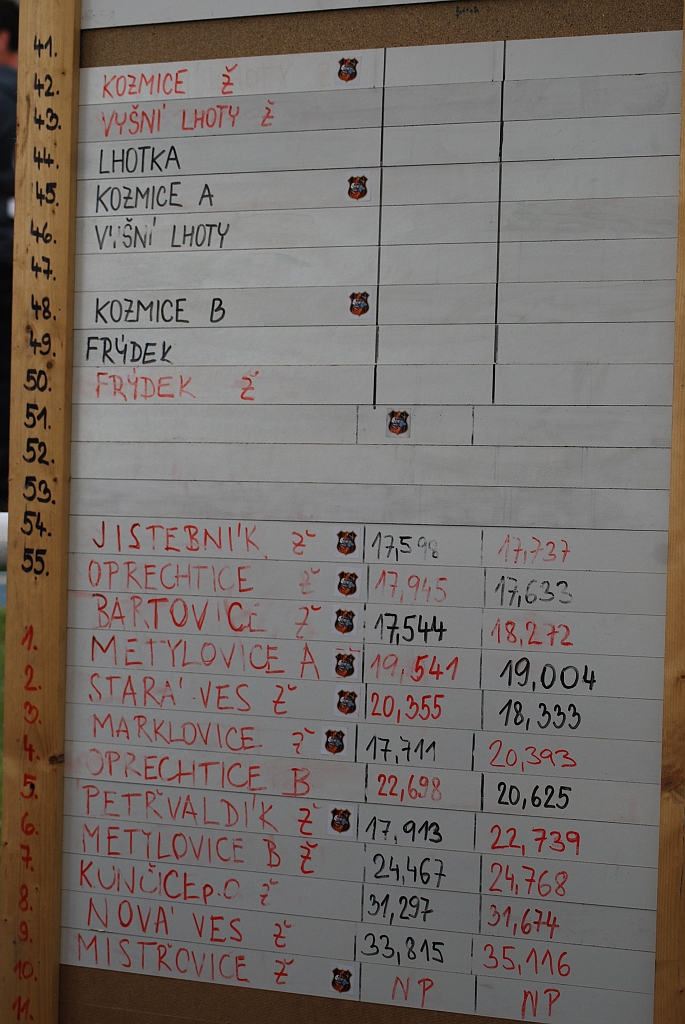 41.
42. KOZMICE Ž
43. VYŠNÍ LHOTY Ž
44. LHOTKA
45. KOZMICE A
46. VYŠNÍ LHOTY
47.
48. KOZMICE B
49. FRÝDEK
50. FRÝDEK Ž
51.
52.
53.
54. JISTEBNÍK Ž 17,598 17,737
55. OPRECHTICE Ž 17,945 17,633
BARTOVICE Ž 17,544 18,272
1. METYLOVICE A 19,541 19,004
2. STARÁ VES Ž 20,355 18,333
3. MARKLOVICE Ž 17,711 20,393
4. OPRECHTICE B 22,698 20,625
5. PETŘVALDÍK Ž 17,913 22,739
6. METYLOVICE B Ž 24,467 24,768
7. KUNČICE p.O Ž 31,297 31,674
8. NOVÁ VES Ž 33,815 35,116
9. MISTŘOVICE Ž NP NP
10.
11.